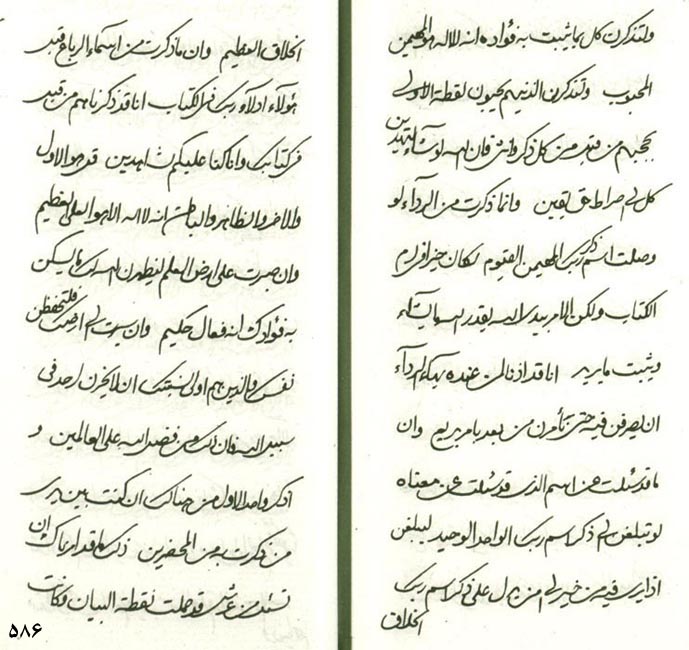 ولتذكرن كل بما يثبت به فؤاده انه لا اله الا هو المهيمن
المحبوب ولتذكرن الذينهم يحبون نقطة الاولى
من قبل من كل ذكر وانثى فان الله لو شاء ليهدين
كل الى صراط حق يقين وانما ذكرت من الرداء لو
وصلت اسم ذكر ربك المهيمن القيوم لكان خير في ام
الكتاب ولكن الامر بيد الله يقدر الله ما يشاء
ويثبت ما يريد انا قد اذنا لمن عنده الرداء
ان يصرفن فيه حتى نأمرن من بعد بامر بديع وان
ما قد سئلت من اسم الذي قد سئلت عن معناه
لو تبلغن الى ذكر اسم ربك الواحد الوحيد ليبلغن
اذا يرى فيه من خير الى من يدل على ذكر اسم ربك
الخلاق
الخلاق العظيم وان ما ذكرت من اسماء الرباع قبل
هؤلاء ادلاء ربك في الكتاب انا قد ذكرناهم من قبل
في كتابك وانا كنا عليكم شاهدين قل هو الاول
والاخر والظاهر والباطن انه لا اله الا هو العلي العظيم
وان صبرت على ارض العلم ليظهرن الله لك ما يسكن
به فؤادك انه فعال حكيم وان سرت الى ارض فلتحفظن
نفسك والذين هم اولي نسبتك ان لا يحزن احد في
سبيل الله فان ذلك من فضل الله على العالمين و
اذكر واحد الاول من هنالك ان كنت بين يدي
من ذكرت من المحضرين ذلك ما قد اريناك ان
تسئلن عن قد حملت نقطة البيان وكانت
۵۸۶